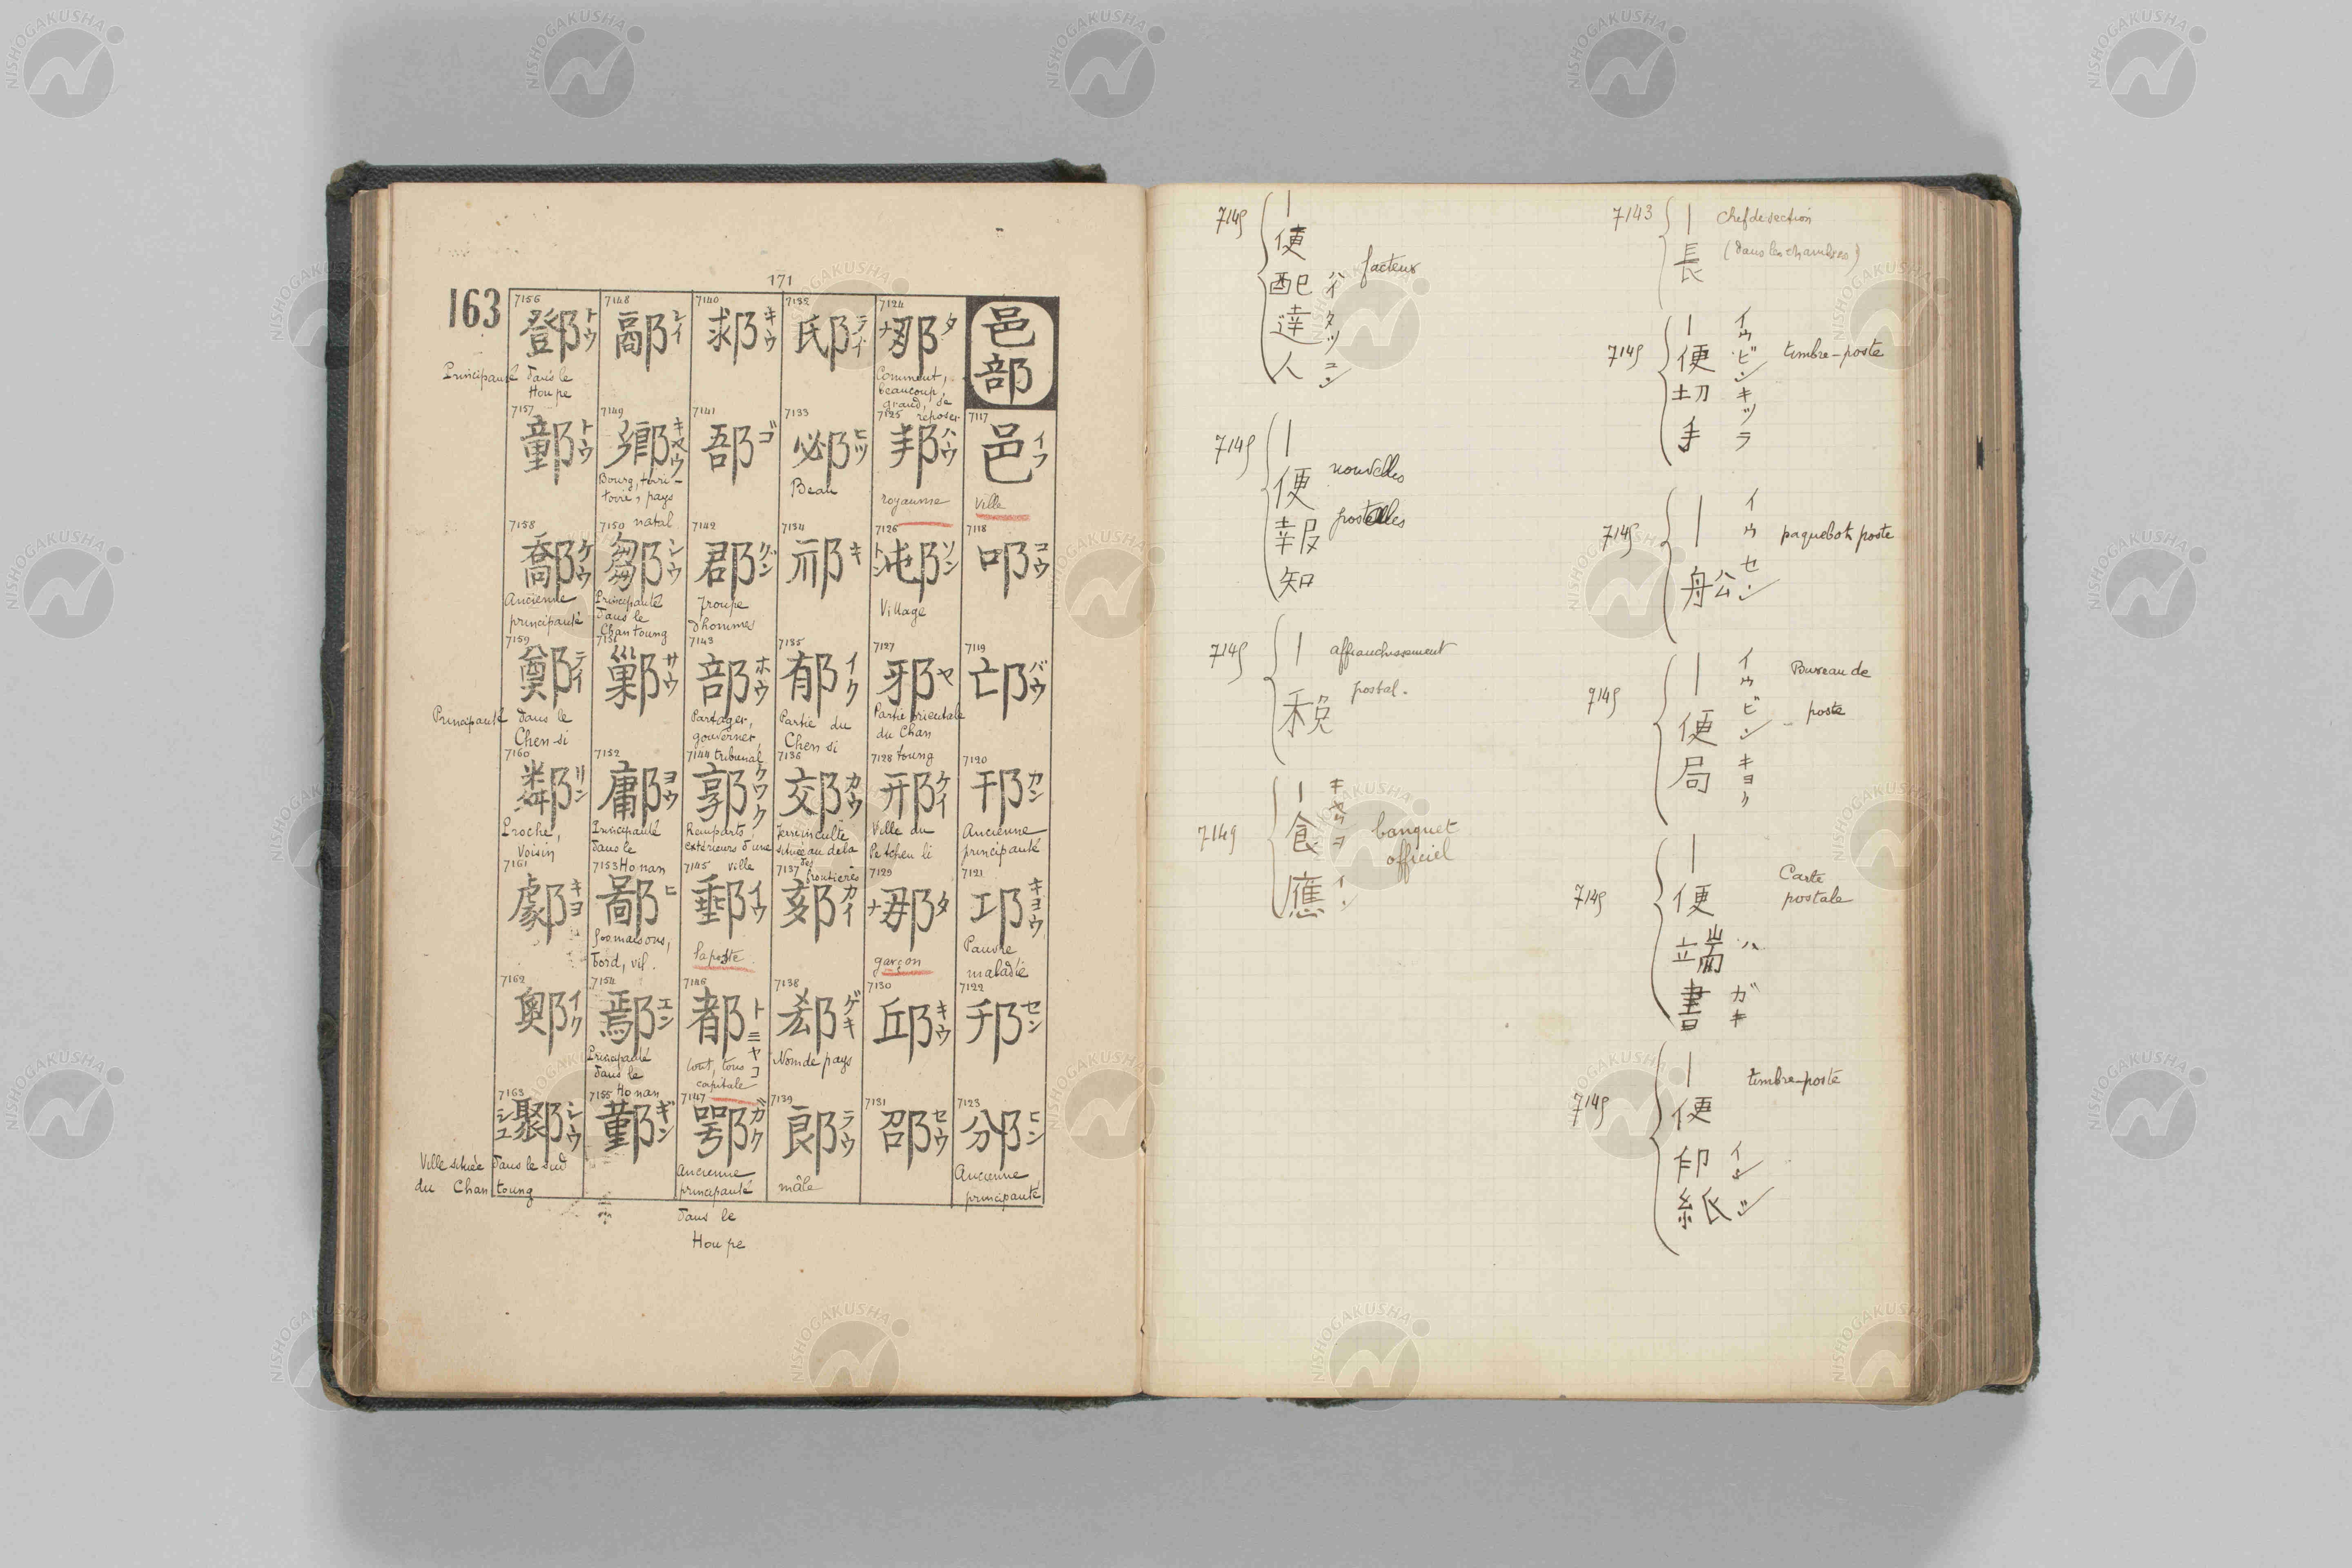 171
163
邑部
7117
邑
イフ
ville
7118
邙
コウ
7119
邙
バウ
7120
邗
カン
Ancienne
principauté
7121
邛
キヨウ
Pauvre
maladie
7122
セン
7123
邠
ヒン
Ancienne
principauté
7124
タ
ナ
Comment,
beaucoup,
grand, se
reposer
7125
邦
ハウ
royaume
7126
邨
ソン
トン
Village
7127
邪
ヤ
Partie orientale
du Chan
toung
7128
邢
ケイ
Ville du
Petcheu li
7129
タ
ナ
garçon
7130
邱
キウ
7131
邵
セウ
7132
邸
テイ
7133
邲
ヒツ
Beau
7134
祁
キ
7135
郁
イク
Partie du
Chen si
7136
郊
カウ
Terre inculte
située au delà
des
frontières
7137
郂
カイ
7138
郄
ゲキ
Nom de pays
7139
郎
ラウ
mâle
7140
郲
キウ
7141
郚
ゴ
7142
郡
グン
Troupe
d'hommes
7143
部
ホウ
Partager,
gouverner,
tribunal
7144
郭
クワク
Remparts
extérieurs d'une
ville
7145
郵
イウ
la poste
7146
都
ト
ミヤコ
tout, tous
capitale
7147
鄂
ガク
Ancienne
principauté
dans le
Hou pe
7148
鄅
レイ
7149
鄉
キヤウ
Bourg, terri-
toire, pays
natal
7150
鄒
シウ
Principauté
dans le
Chan toung
7151
鄛
サウ
7152
鄘
ヨウ
Principauté
dans le
Ho nan
7153
鄙
ヒ
500 maisons,
bord, vil.
7154
鄢
エン
Principauté
dans le
Ho nan
7155
ギン
7156
鄧
トウ
Principauté dans le
Hou pe
7157
トウ
7158
鄡
ケウ
Ancienne
principauté
7159
鄭
テイ
Principauté dans le
Chen-si
7160
鄰
リン
Proche,
Voisin
7161
キヨ
7162
イク
7163
シウ
シユ
Ville située dans le sud
du Chan toung
7143
｜長
Chef de section
(dans les chambres)
7145
｜便切手
イウビンキツテ
timbre-poste
7145
｜舩
イウセン
paquebot poste
7145
｜便局
イウビンキョク
Bureau de
poste
7145
｜便端書
ハガキ
Carte
postale
7145
｜便印紙
インシ
timbre-poste
7145
｜便配達人
ハイタツニン
facteur
7145
｜便報知
nouvelles
postales
7145
｜税
affranchissement
postal.
7149
｜食應
キヤウヲ
banquet
officiel
NISHOGAKUSHA